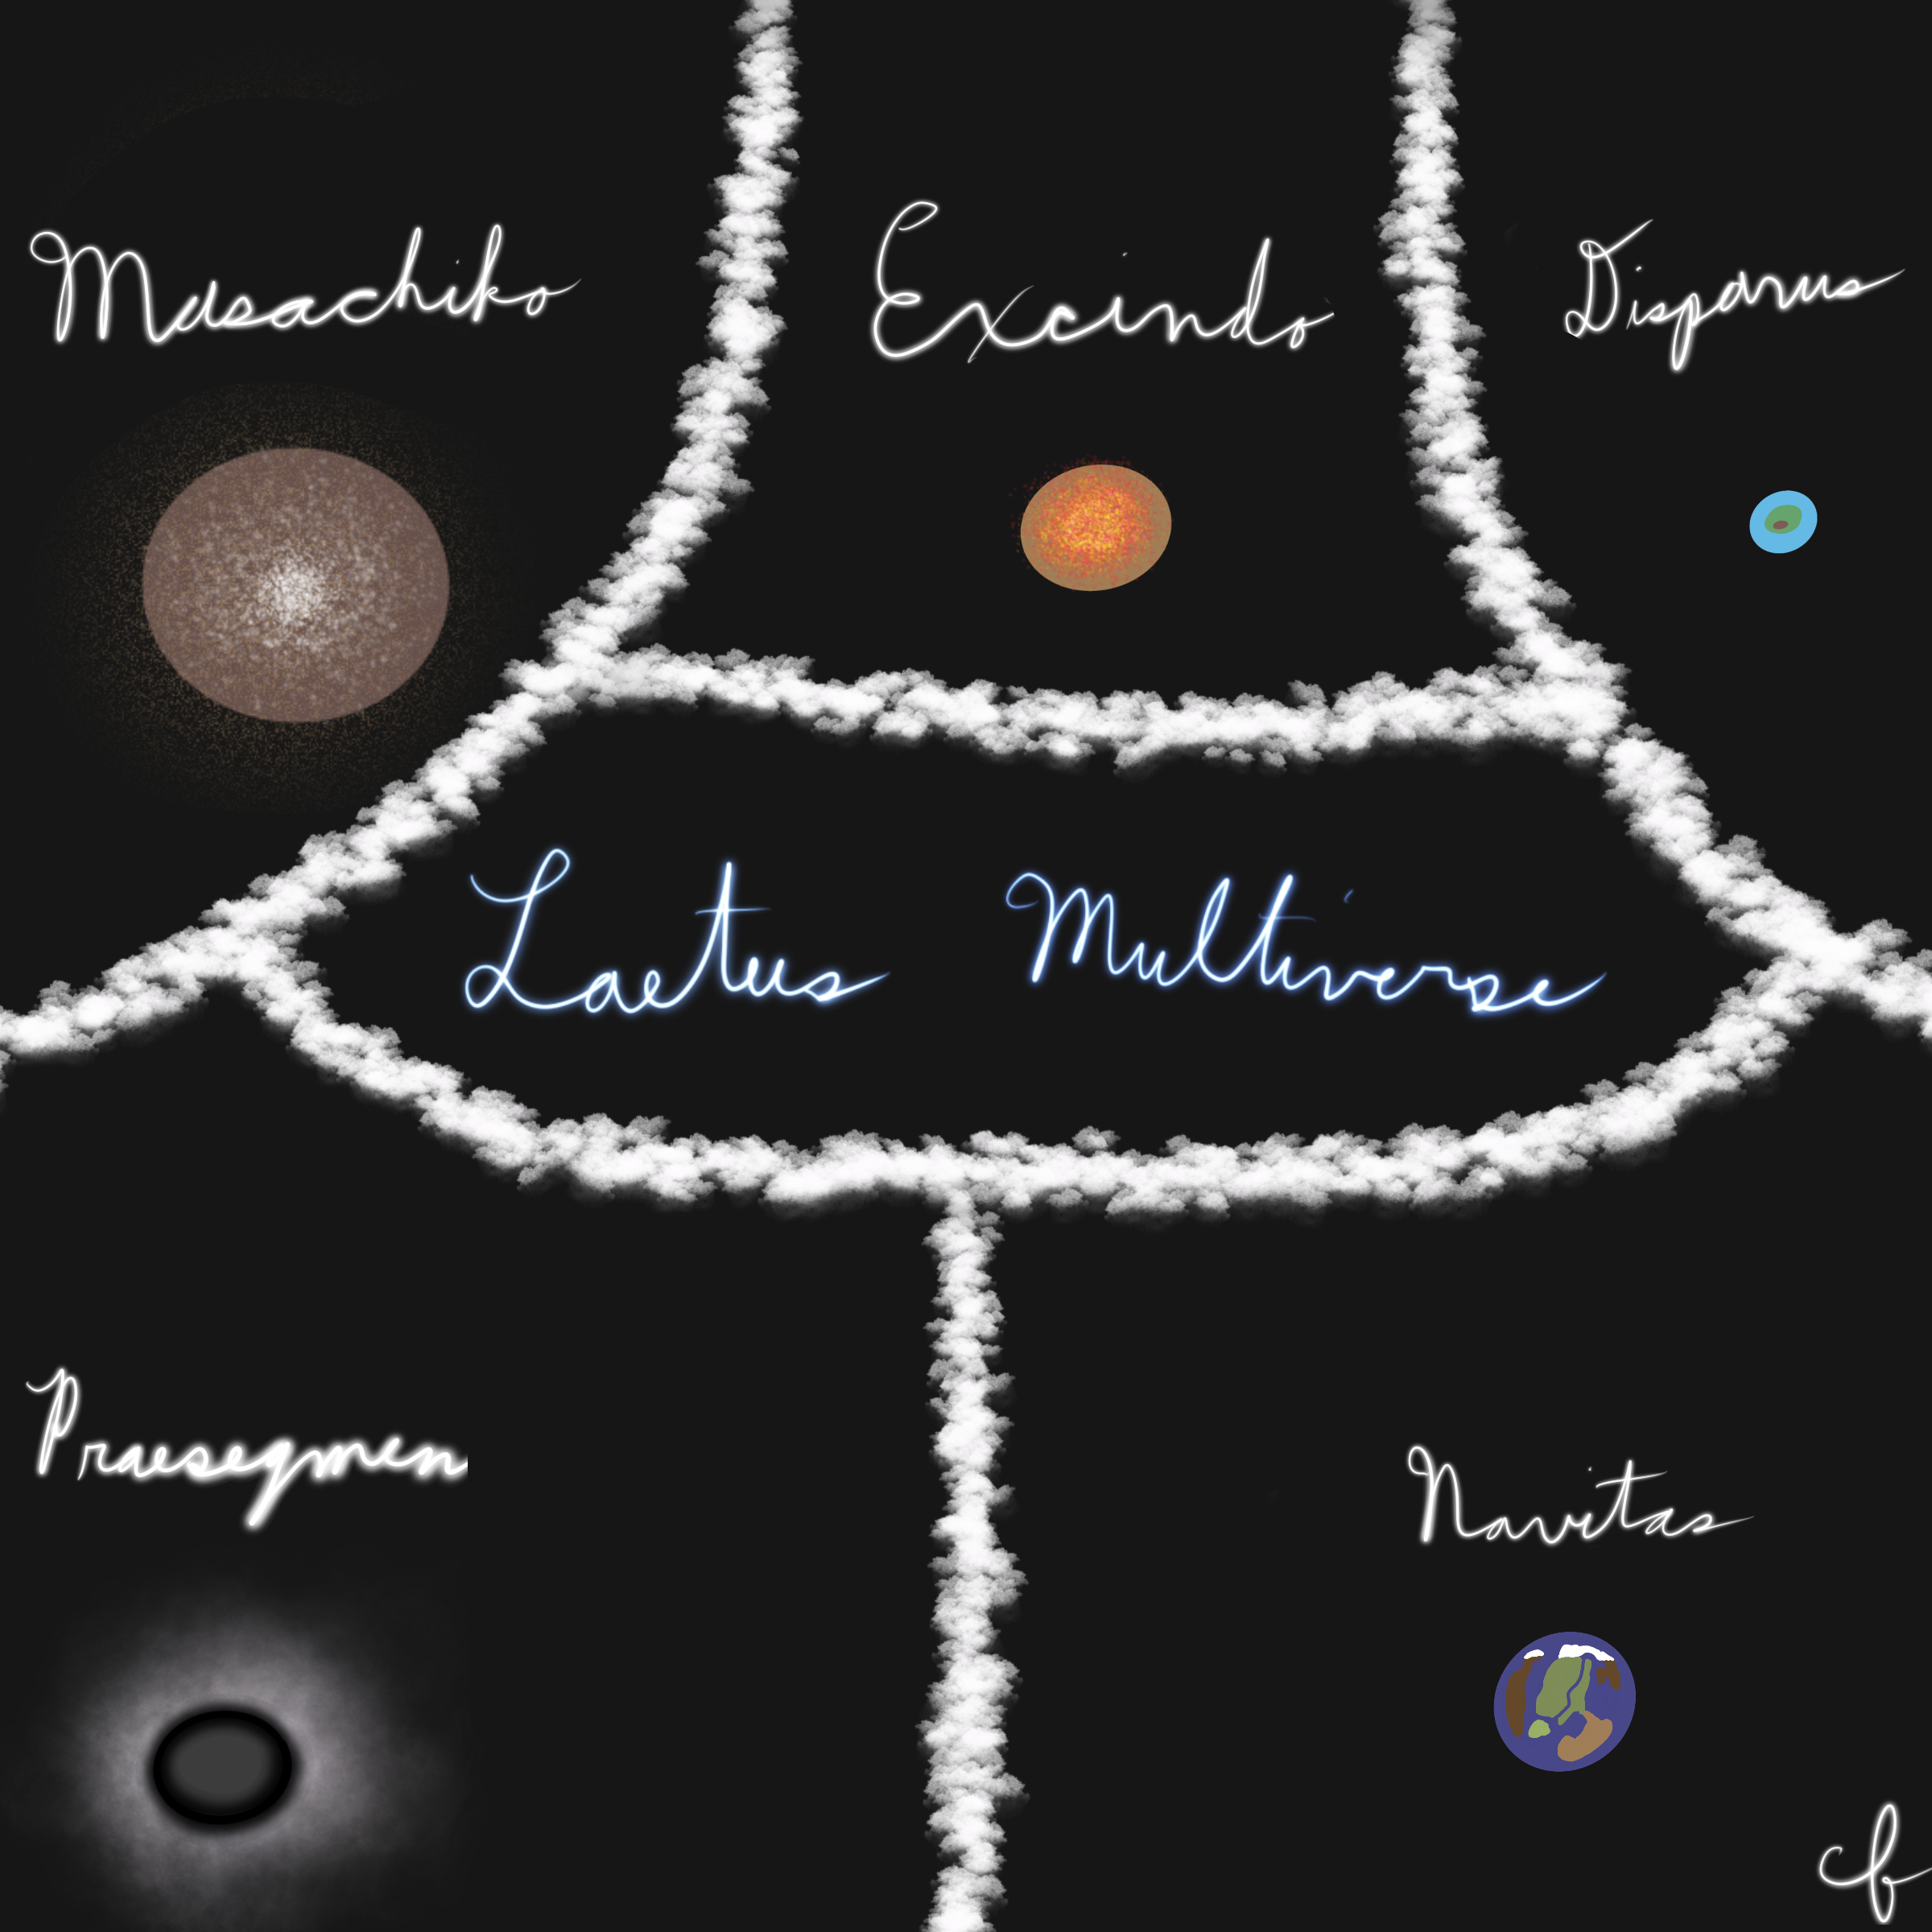 Masachiko
Excindo
Disparus
Laetus Multiverse
Praesegmen
Navitas
cf